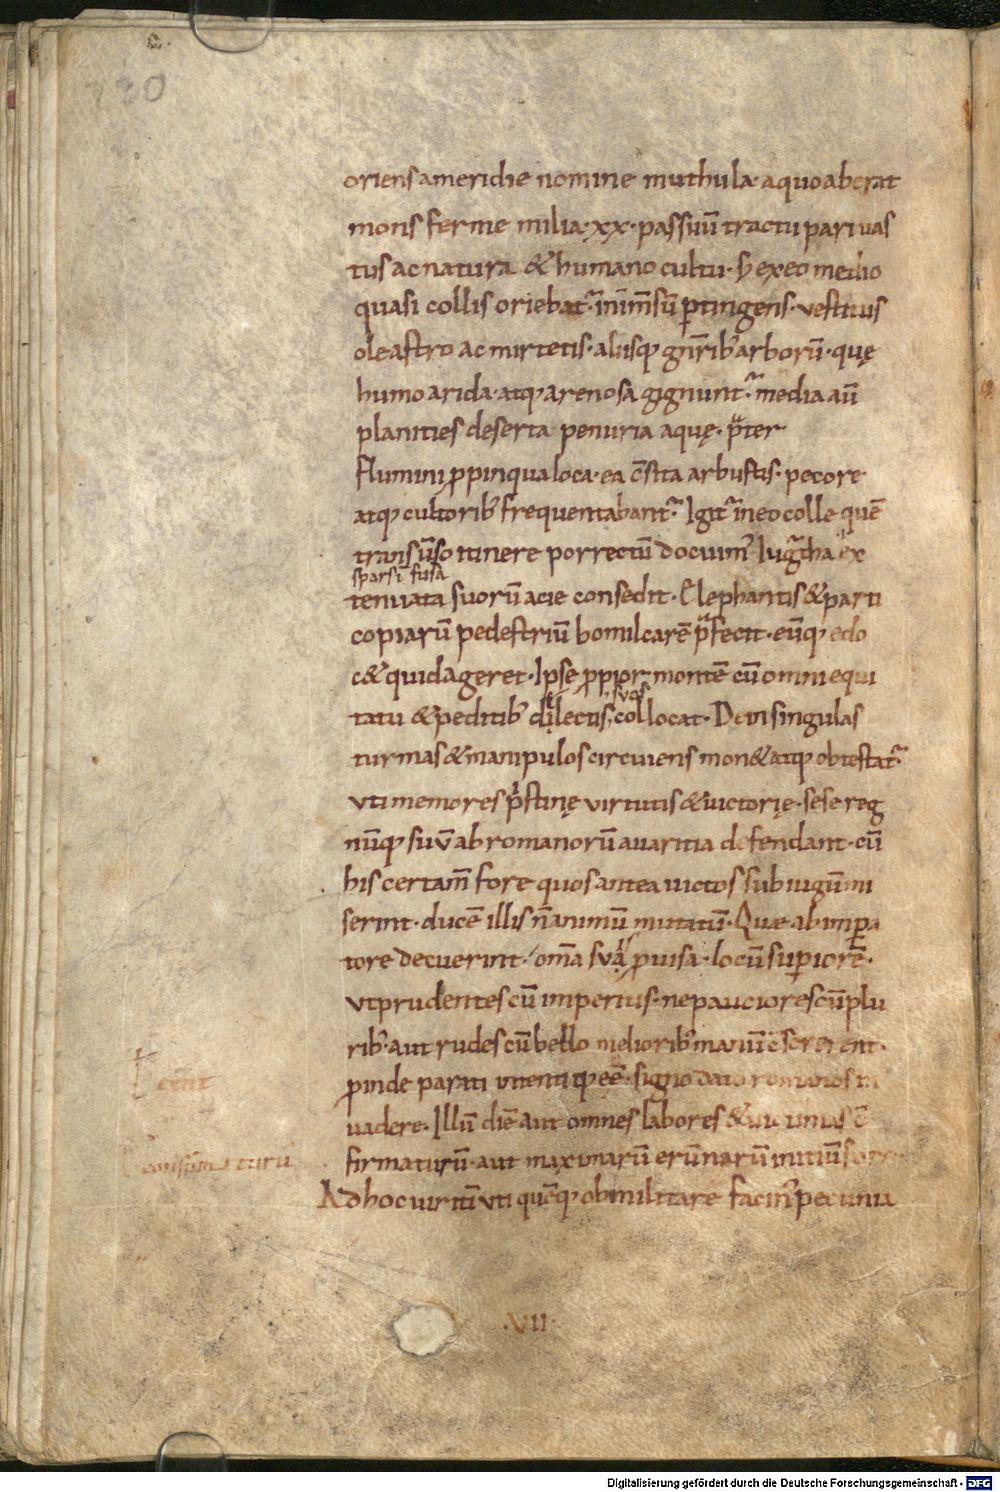 e.
230
oriens a meridie nomine muthula· a quo aberat
mons ferme milia· xx· passuū tractu pari uas
tus ac natura & humano cultu· S; ex eo medio
quasi collis oriebat᷑ inīmsū ꝑtingens· vestitus
oleastro ac mirtetis· aliisq; gn̄rib; arborū· quę
humo arida· atq; arenosa gignunt᷑ media aū
planities deserta penuria aquę· p̄ter
flumini ꝓpinqua loca· ea c̄sita arbustis· pecore
atq; cultorib; frequentabant᷑ Igit᷑ in eo colle quē
transūso itinere porrectū docuim᷒ Iugurtha ex
sparsi fusa
tenuata suorū acie consedit· Elephantis & parti
copiarū pedestriū bomilcarē p̄fecit· eūq; edo
c& quid ageret· Ipse ꝓpior montē cū omni equi
suos
tatu & peditib; dilectis collocat· Dein singulas
turmas & manipulos circuiens mon& atq; obtestat᷑
vti memores p̄stinę virtutis & uictorię· sese reg
nūq; suū ab romanorū auaritia defendant· cū
his certam̄ fore quos antea uictos sub iugū mi
serint· ducē illis n̄ animū mutatū· Quae ab impa
tore decuerint· om̄a suis ꝓuisa· locū supiorē·
vt prudentes cū imperitis· ne pauciores cū plu
rib; aut rudes cū bello meliorib; manū c̄sererent·
ꝓinde parati intentiq; eē· signo dato romanos in
uadere· Illū diē aut omnes labores & uictorias c̄
firmaturū· aut maximarū erūnarū initiū fore
consūmaturū
Ad hoc uiritī uti quēq; ob militare facin᷒ pecunia
·VII·
Digitalisierung gefördert durch die Deutsche Forschungsgemeinschaft - DFG